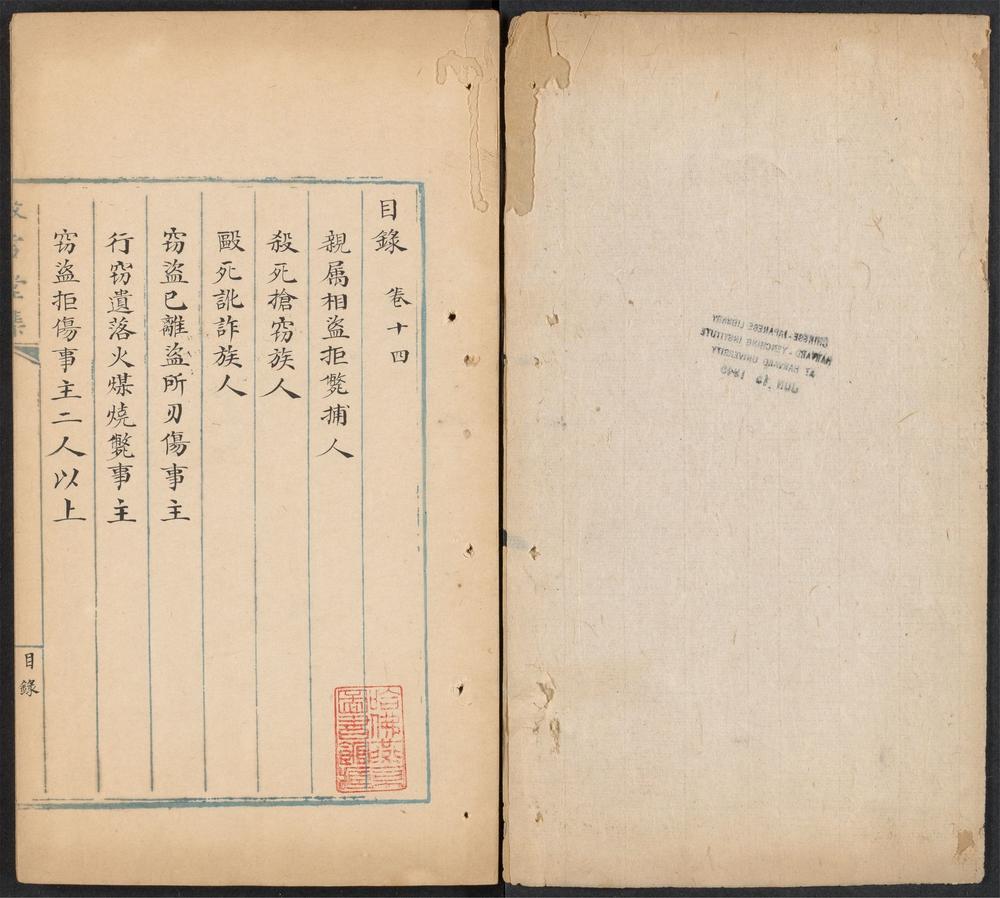 目錄 卷十四
親属相盜拒斃捕人
殺死搶窃族人
毆死訛詐族人
窃盜已離盜所刃傷事主
行窃遺落火煤燒斃事主
窃盜拒傷事主二人以上
目錄
哈佛燕京
圖書館
CHINESE-JAPANESE LIBRARY
HARVARD-YENCHING INSTITUTE
AT HARVARD UNIVERSITY
JUN